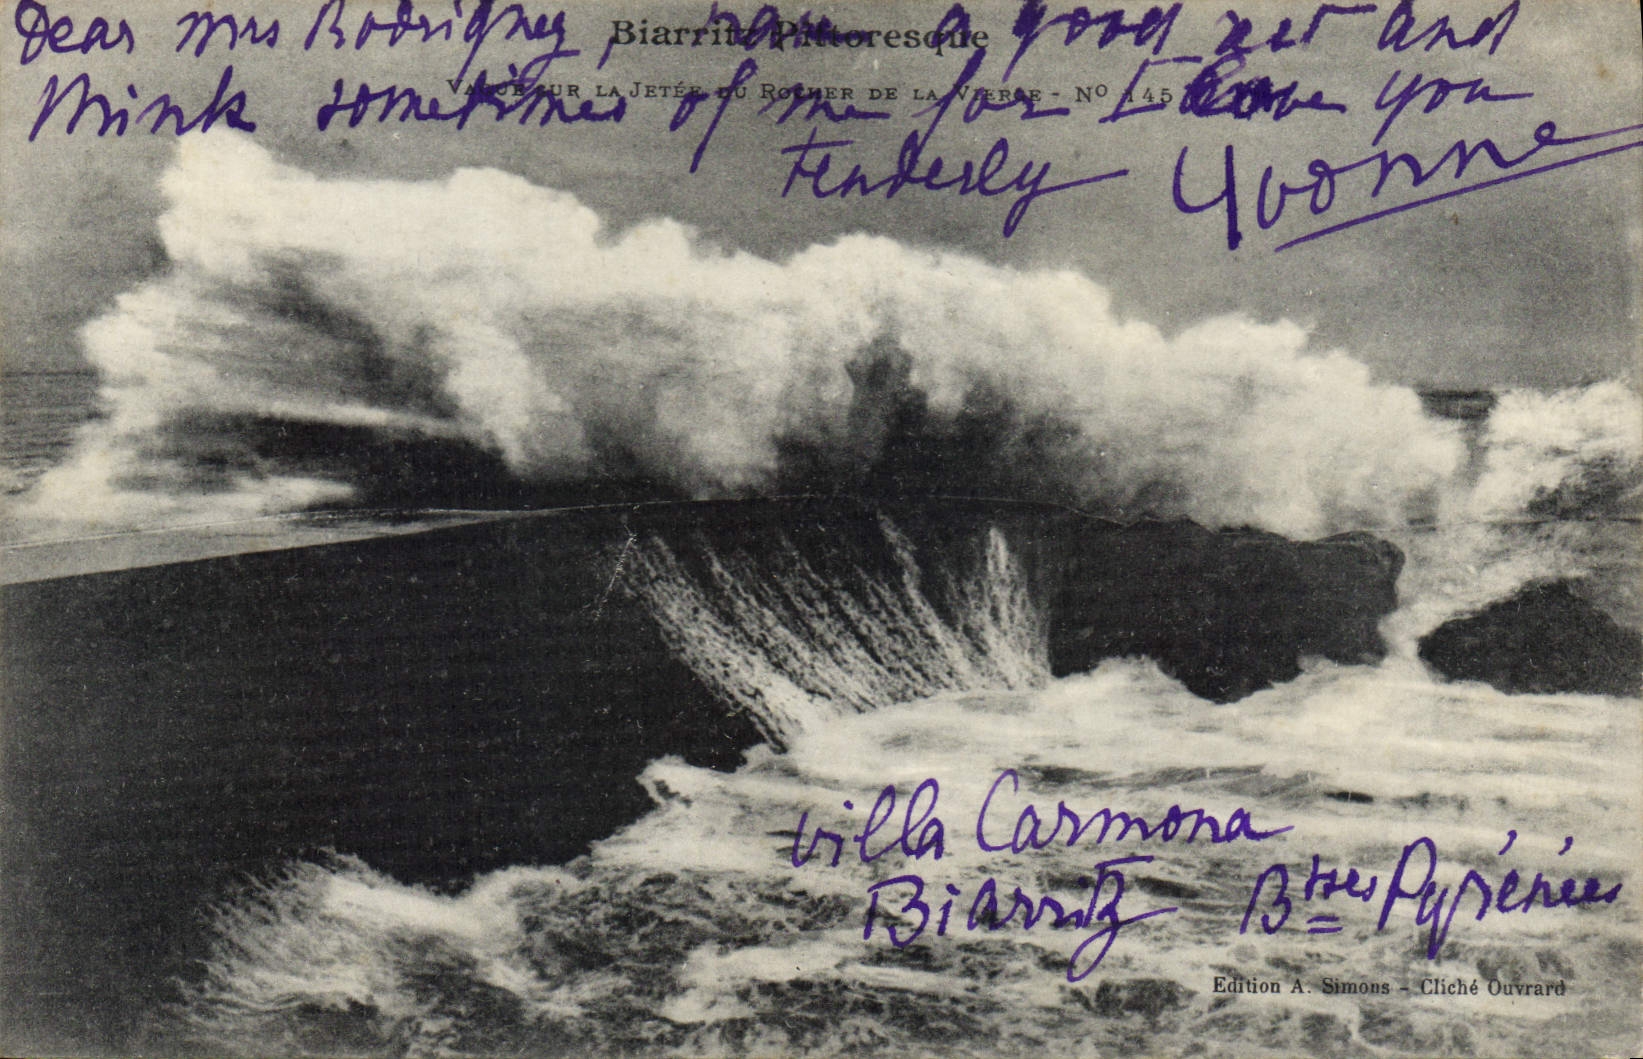 Dear Mrs Rodriguez, have a good rest and
Biarritz Pittoresque
think sometimes of me for I love you
Vague sur la Jetée du Rocher de la Vierge - No 145
tenderly Yvonne
Villa Carmona
Biarritz Bsses Pyrénées
Edition A. Simons - Cliché Ouvrard